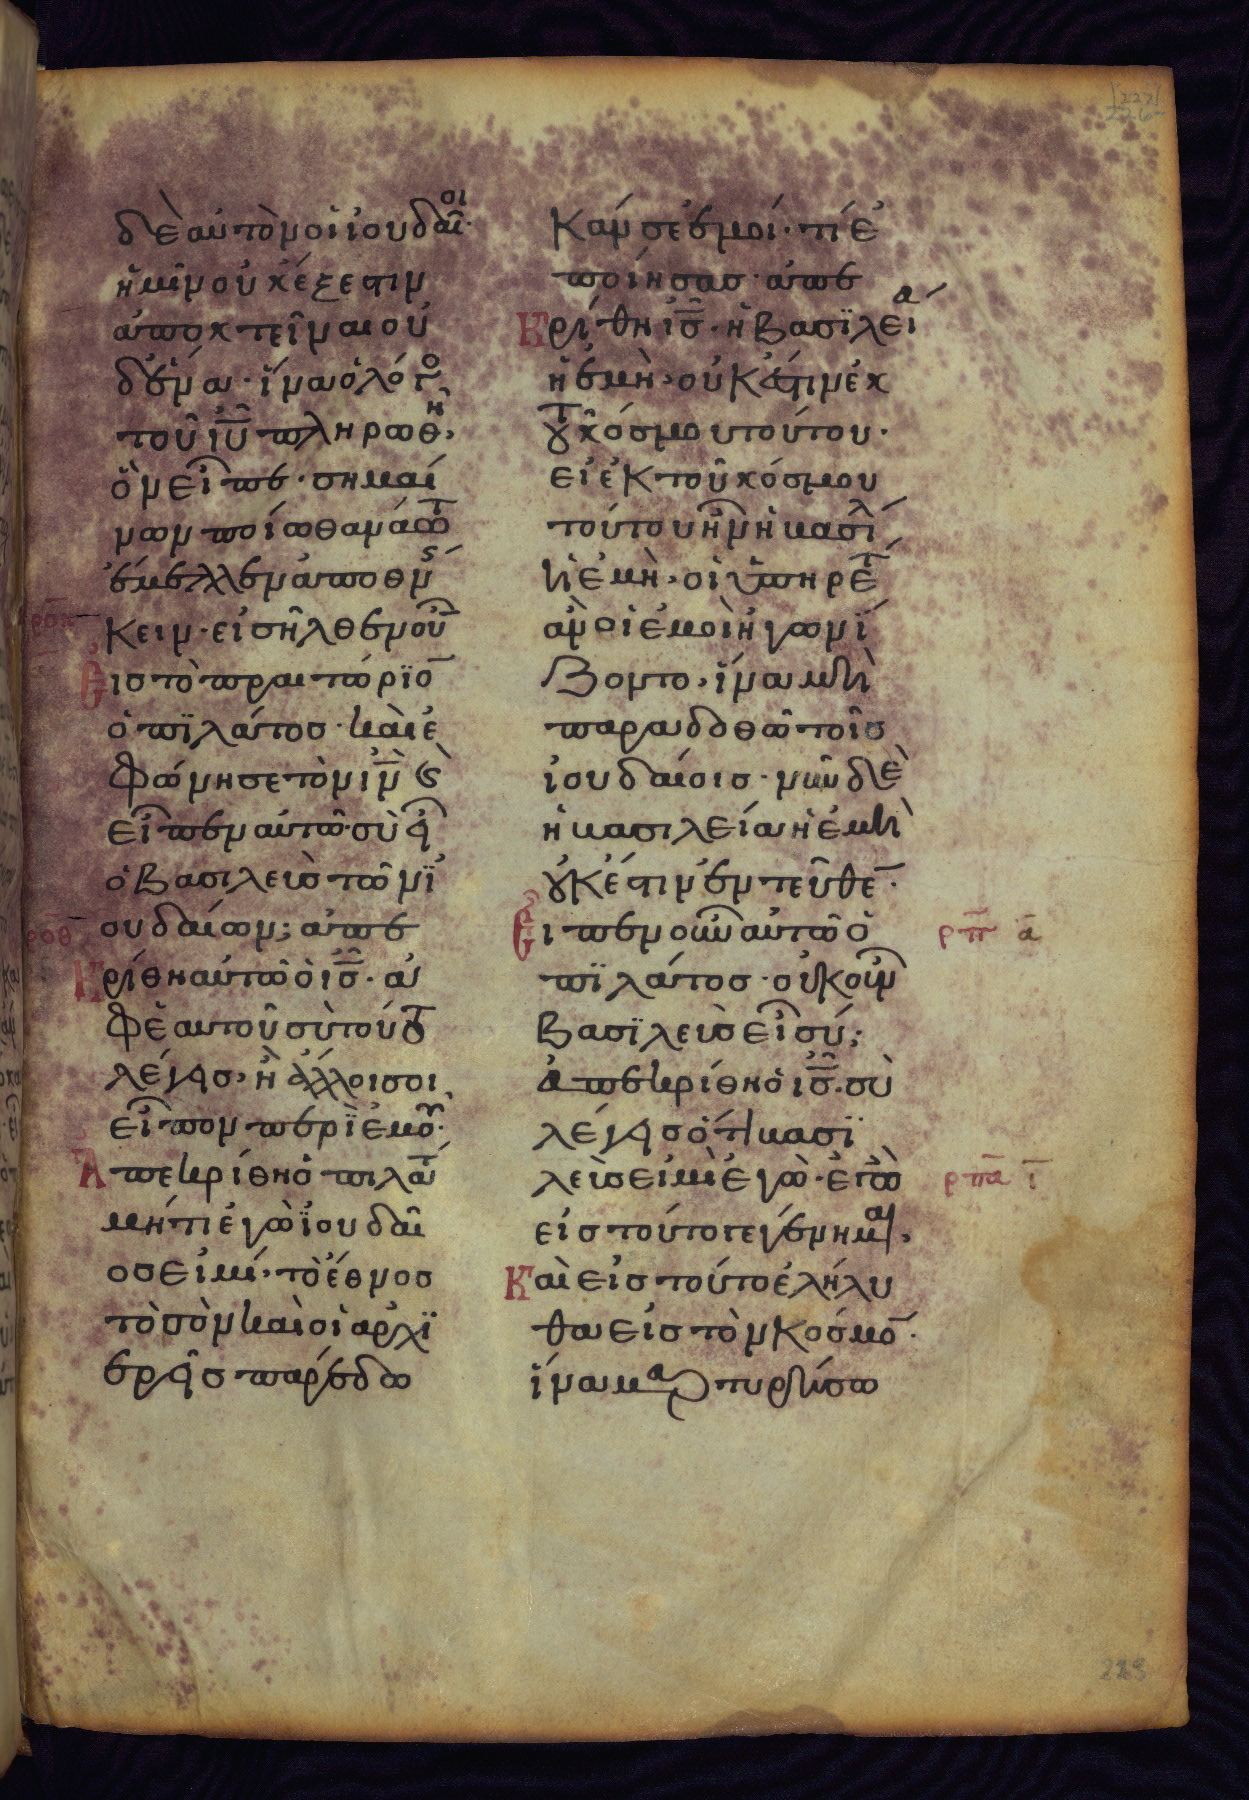 δὲ αὐτὸν οἱ ἰουδαῖοι·
ἡμῖν οὐκ ἔξεστιν
ἀποκτεῖναι οὐ
δένα· ἵνα ὁ λόγο
τοῦ ἰῦ πληρωθῆ,
ὃν εἶπε· σημαί
νων ποίω θανάτω
ἔμελλεν ἀποθνήσ
κειν· εἰσῆλθεν οὖν
εἰς τὸ πραιτώριο
ὁ πϊλάτος· καὶ ἐ
φώνησε τὸν ἰν καὶ
εἶπεν αὐτῶ· σὺ εἶ
ὁ βασιλεὺς τῶν ϊ
ουδαίων; ἀπε
κρίθη αὐτῶ ὁ ἰς· ἀ
φ' ἑαυτοῦ σὺ τοῦτο
λέγεις, ἢ ἄλλοι σοι
εἶπον περὶ ἐμοῦ·
Ἀπεκρίθη ὁ πιλάτ
μήτι ἐγὼ ϊουδαῖ
ος εἰμί· τὸ ἔθνος
τὸ σὸν καὶ οἱ ἀρχϊ
ερεῖς παρέδω
καν σε ἐμοί· τί ἐ
ποίησας· ἀπε
Κρίθη ἰς· ἡ βασϊλεία
ἡ ἐμὴ, οὐκ ἔστιν ἐκ
τοῦ κόσμου τούτου·
εἰ ἐκ τοῦ κόσμου
τούτου ἦν ἡ βασιλεί
ἡ ἐμὴ, οἱ ὑπηρέτ
ἂν οἱ ἐμοὶ ἠγωνί
ζοντο, ἵνα μὴ
παραδοθῶ τοῖς
ἰουδαίοις· νῦν δὲ
ἡ βασιλεία ἡ ἐμὴ
οὐκ ἔστιν ἐντεῦθε·
Εἶπεν οὖν αὐτῶ ὁ
ρπ α
πϊλάτος· οὐκοῦν
βασϊλεὺς εἶ σύ;
ἀπεκρίθη ὁ ἰς· σὺ
λέγεις ὅτι βασϊ
λεὺς εἰμὶ ἐγὼ· ἐγὼ
ρπα ι
εἰς τοῦτο γεγέννημαι,
Καὶ εἰς τοῦτο ἐλήλυ
θα εἰς τὸν κόσμο·
ἵνα μαρτυρήσω